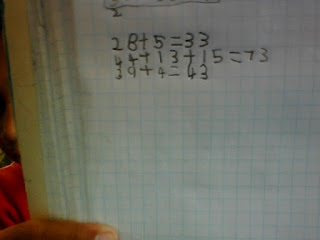 2
28+5=33
44+13+15=73
39+4=43